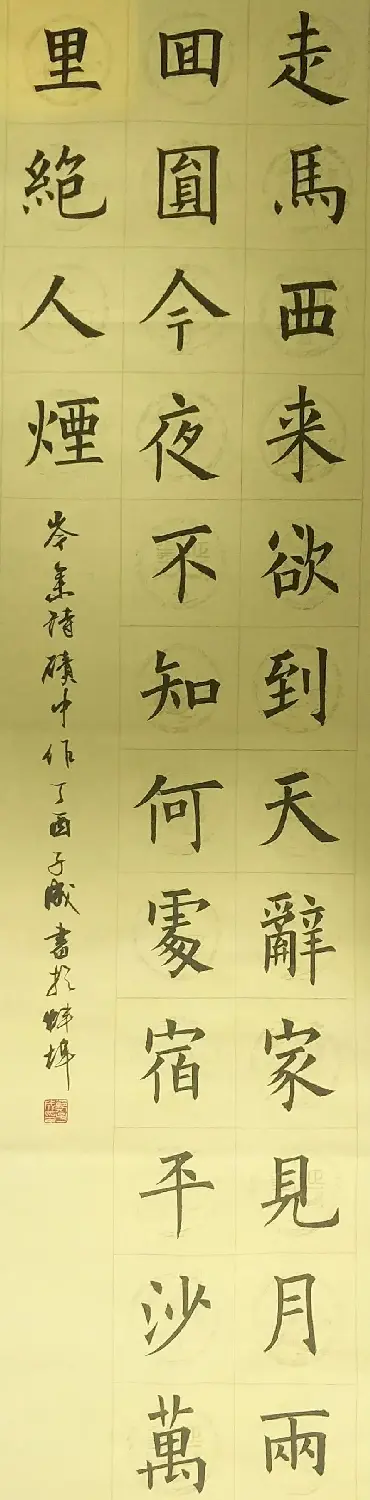 走馬西来欲到天辭家見月兩
囬圎今夜不知何處宿平沙萬
里絕人煙
岑參詩磧中作丁酉子成書於蚌埠